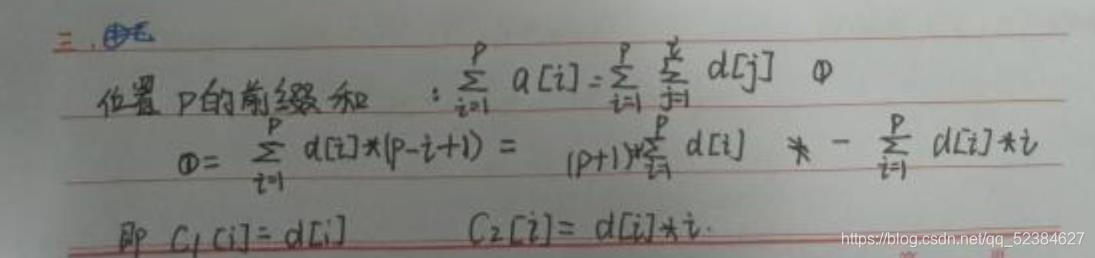 三.
位置P的前缀和 : ∑_{i=1}^{P} a[i] = ∑_{i=1}^{P} ∑_{j=1}^{i} d[j] ①
① = ∑_{i=1}^{P} d[i]*(P-i+1) = (P+1)*∑_{i=1}^{P} d[i] * - ∑_{i=1}^{P} d[i]*i
即 C₁[i] = d[i] C₂[i] = d[i]*i.
https://blog.csdn.net/qq_52384627